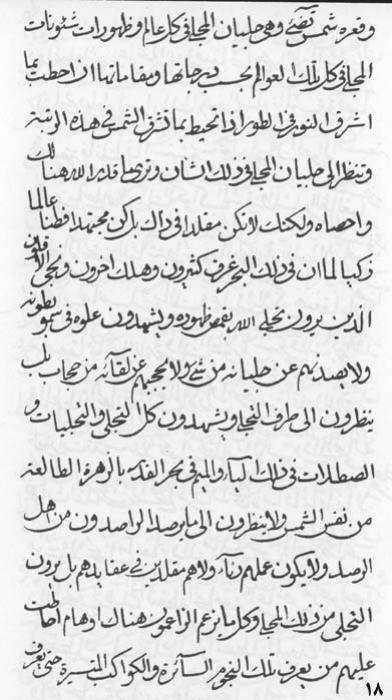 وقعره شمس تضئ وهي جليان المجلي في كل عالم وظهورات شئونات
المجلي في كل تلك العوالم بحسب درجاتها ومقاماتها اذا احطت بما
اشرق النور في الطور اذا تحيط بما تشرق الشمس في هذه الرتبة
وتنظر الى جليان المجلي في ذلك الشان وترى ما قدر الله هنالك
واحصاه ولكنك لا تكن مقلدا في ذاك بل كن مجتهدا فطنا عالما
زكيا لما ان في ذلك البحر غرق كثيرون وهلك اخرون ونجى الاقلون
الذين يرون تجلي الله بقمص ظهوره ويشهدون علوه في سمو بطونه
ولا يصدنهم عن جليانه من شئ ولا يحجبهم عن لقائه من حجاب بل
ينظرون الى طرف المجلي ويشهدون كل التجلي والتجليات و
الصطلات في ذلك البهاء والميم في بحر الفلك بالزهرة الطالعة
من نفس الشمس ولا ينظرون الى ما يرصد الراصدون من اهل
الرصد ولا يكون عملهم رئاء ولا هم مقلدين في عقايدهم بل يرون
التجلي من ذلك المجلي وكل ما يزعم الزاعمون هناك اوهام احاطت
عليهم من يعرف تلك النجوم السائرة والكواكب المنيرة حق يعرف
١٨